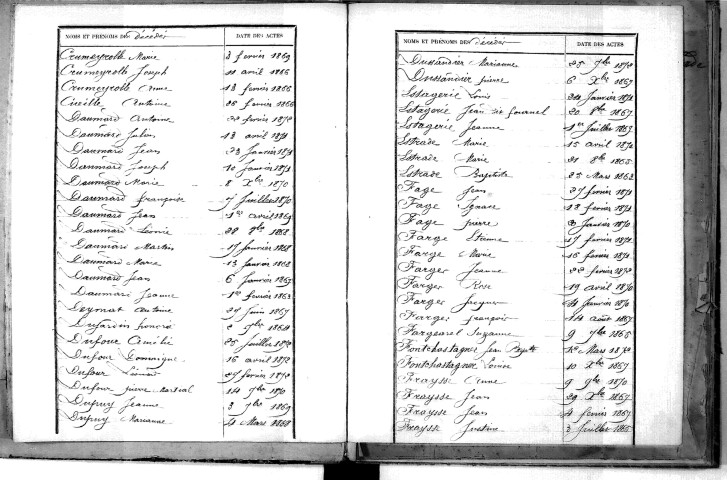 NOMS ET PRÉNOMS DES Décédés DATE DES ACTES
Crumeyrolle Marie 3 fevrier 1869
Crumeyrolle Joseph 11 avril 1866
Crumeyrolle Anne 13 fevrier 1866
Cueille Antoine 26 fevrier 1866
Daumard Antoine 22 fevrier 1872
Daumard Julien 13 avril 1871
Daumard Jean 23 Janvier 1871
Daumard Joseph 10 Janvier 1871
Daumard Marie 8 Xbre 1870
Daumard françoise 7 Juillet 1870
Daumard Jean 1er avril 1869
Daumard Léonie 1868
Daumard Martin 17 Janvier 1868
Daumard Marie 13 Janvier 1868
Daumard Jean 6 Janvier 1867
Daumard Jeanne 1er fevrier 1863
Deymat Antoine 29 Juin 1867
Dujardin honoré 2 9bre 1864
Dufour Amélie 25 Juillet 1872
Dufour Dominique 16 avril 1872
Dufour Léonard 27 fevrier 1872
Dufour pierre Martial 14 9bre 1870
Dupuy Jeanne 3 9bre 1869
Dupuy Marianne 4 Mars 1868
NOMS ET PRÉNOMS DES Décédés DATE DES ACTES
Dussandier Marianne 25 7bre 1872
Dussandier pierre 6 Xbre 1867
Estagerie Louis 24 Janvier 1871
Estagerie Jean dit 20 8bre 1867
Estagerie Jeanne 1er Juillet 1867
Estrade Marie 15 avril 1872
Estrade Marie 21 8bre 1865
Estrade Baptiste 25 Mars 1863
Fage Jean 27 fevrier 1871
Fage Ignace 18 fevrier 1871
Fage pierre 3 Janvier 1870
Farge Etienne 17 fevrier 1871
Farge Marie 16 fevrier 1871
Farger Jeanne 22 fevrier 1872
Farger Rose 19 avril 1870
Farger Jacques 21 Janvier 1870
Farger françois 14 août 1867
Fargearel Suzanne 9 9bre 1865
Fontchastagner Jean Bapte 1er Mars 1872
Fontchastagner Louise 10 Xbre 1867
Fraysse Anne 9 9bre 1870
Fraysse Jean 29 Xbre 1867
Fraysse Jean 4 fevrier 1867
Fraysse Justine 3 Juillet 1865